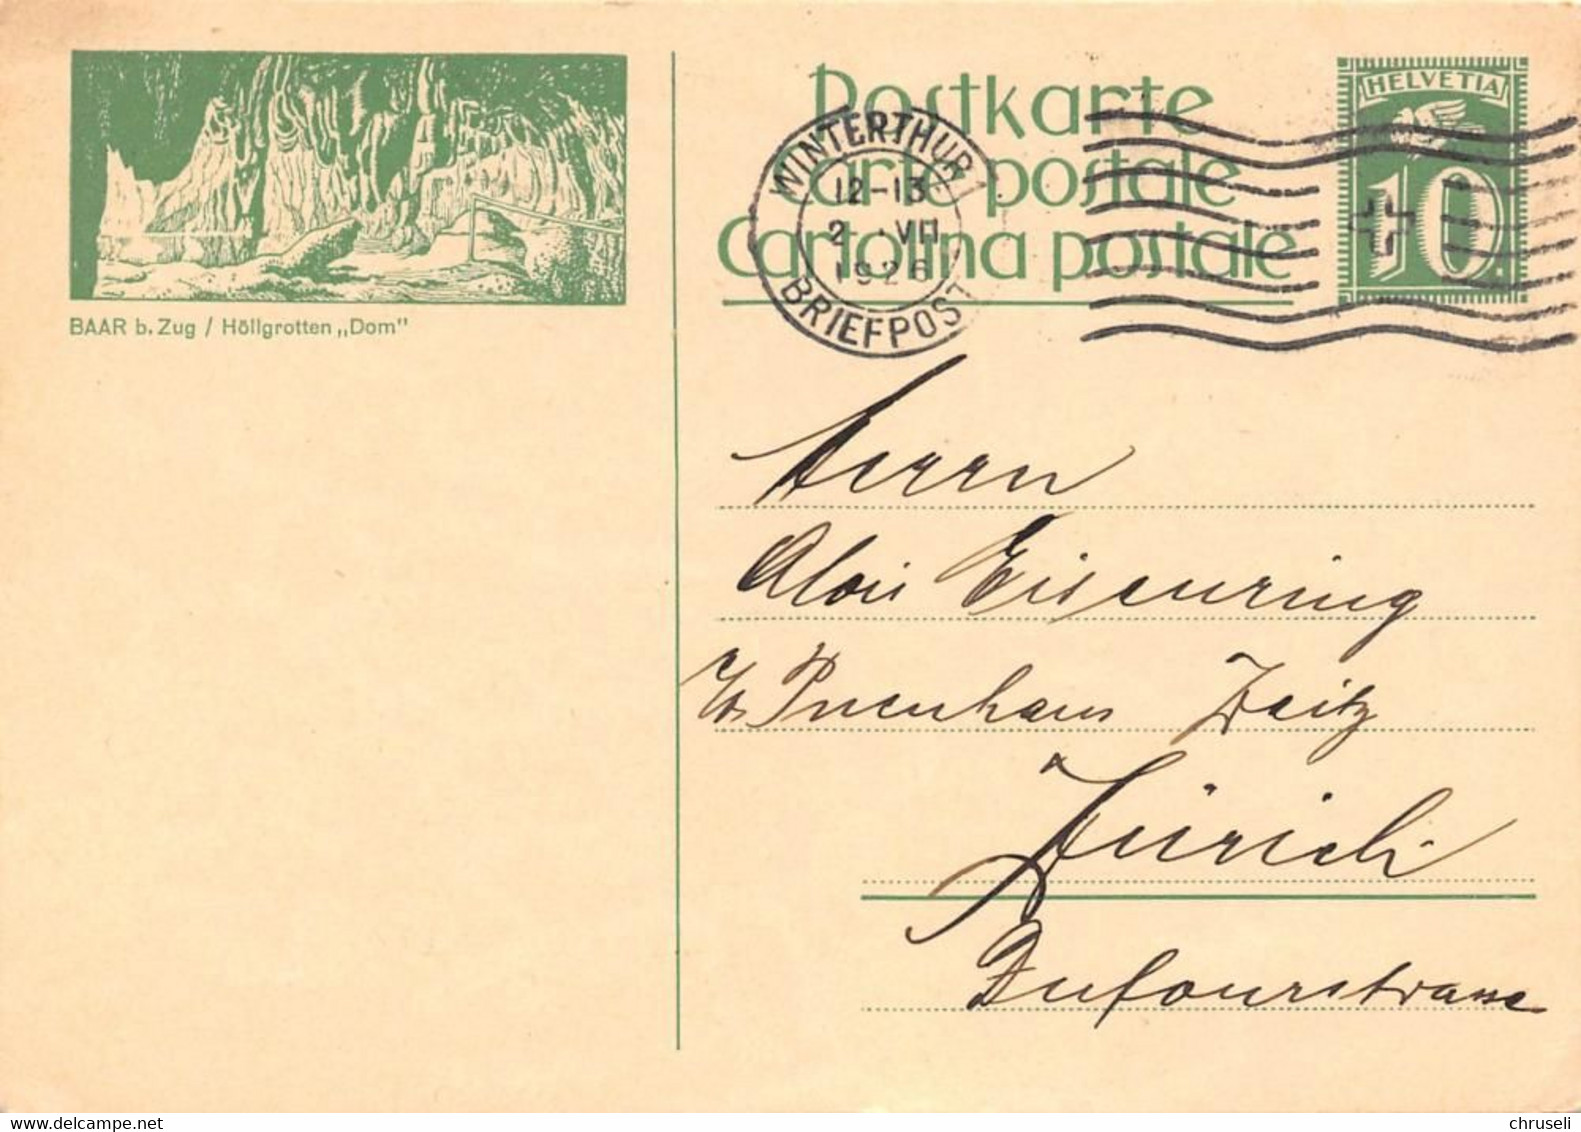 Postkarte
Carte postale
Cartolina postale
HELVETIA
10.
WINTERTHUR 1
12-13
2 . VII
1926
BRIEFPOST
BAAR b. Zug / Höllgrotten „Dom"
Herrn
Alois Eisenring
Zürich
Dufourstrasse
www.delcampe.net
chruseli